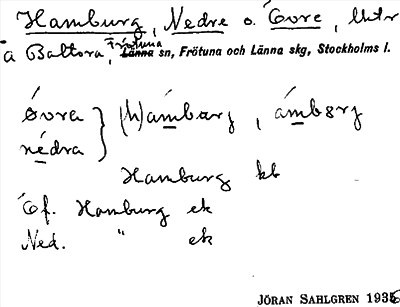 Hamburg, Nedre o. Övre, lhtr
å Baltora, Frötuna Länna sn, Frötuna och Länna skg, Stockholms l.
óvra
nédra } (h)ámbarj, ámbərj
Hamburg kb
Öf. Hamburg ek
Ned. " ek
JÖRAN SAHLGREN 1935